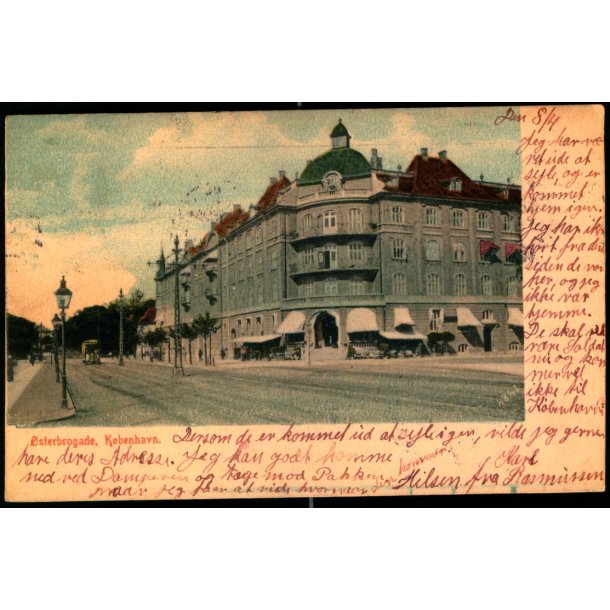 Den 8/4
Jeg har væ
ret ude at
sejle, og er
kommet
hjem igen.
Jeg har ikke
hørt fra dem
siden de var
her, og jeg
ikke var
hjemme.
De skal vel
være Soldat
nu og kom
mer vel
ikke til
København
Østerbrogade, København.
Dersom de er kommet ud at sejle igen, vilde jeg gerne
have deres Adresse. Jeg kan godt komme
ned ved Damperen og tage mod Pakken
maar jeg faar at vide hvornaar den kommer
Karl
Hilsen fra Rasmussen